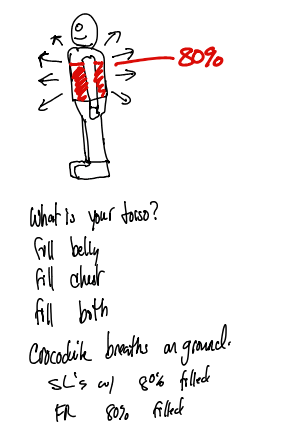 80%
What is your torso?
fill belly
fill chest
fill both
Crocodile breaths on ground.
SL's w/ 80% filled
FR 80% filled